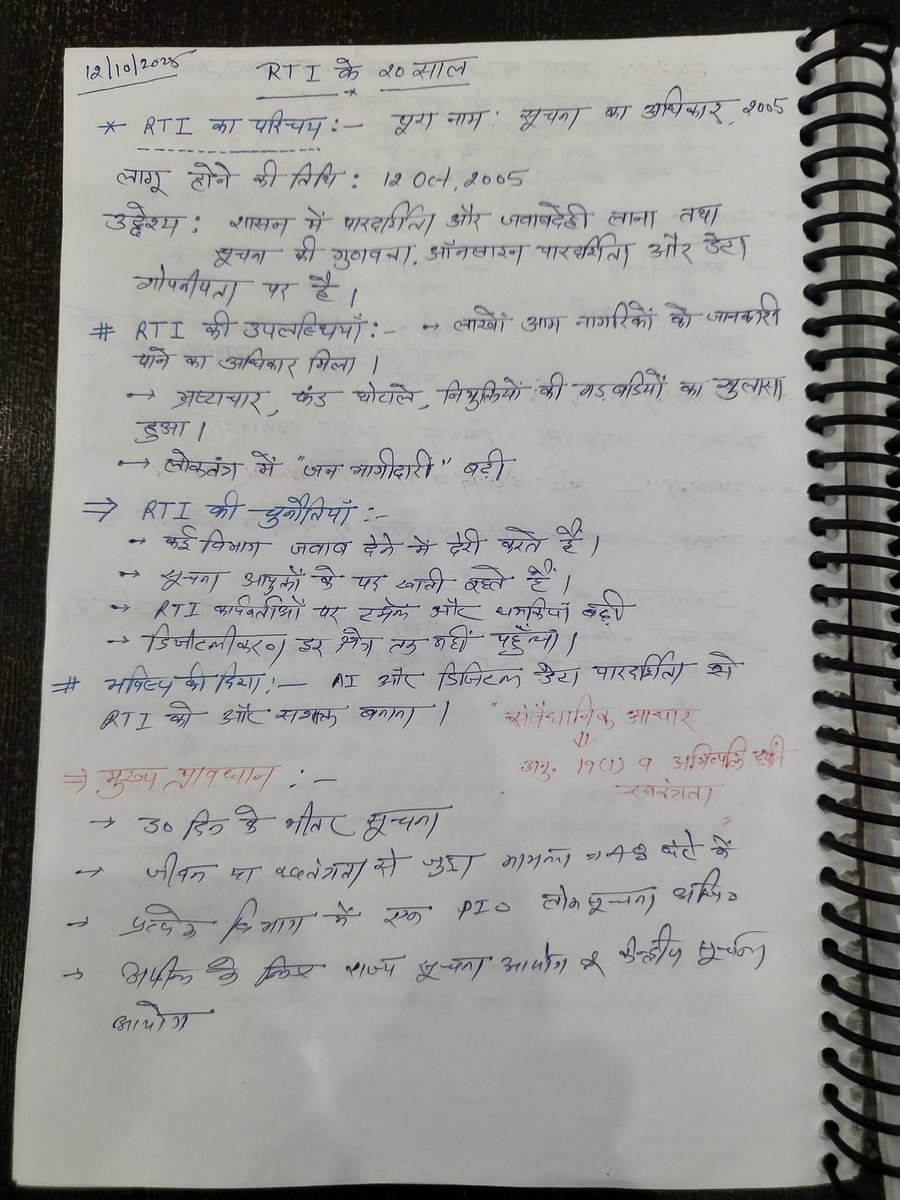 12/10/2025
RTI के २० साल
* RTI का परिचय :- पूरा नाम : सूचना का अधिकार, २००5
लागू होने की तिथि : 12 Oct, २००5
उद्देश्य : शासन में पारदर्शिता और जवाबदेही लाना तथा
सूचना की गुणवत्ता, ऑनलाइन पारदर्शिता और डेटा
गोपनीयता पर है।
# RTI की उपलब्धियाँ :- → लाखों आम नागरिकों को जानकारी
पाने का अधिकार मिला।
→ भ्रष्टाचार, फंड घोटाले, नियुक्तियों की गड़बड़ियों का खुलासा
हुआ।
→ लोकतंत्र में "जन भागीदारी" बढ़ी
⇒ RTI की चुनौतियाँ :-
→ कई विभाग जवाब देने में देरी करते हैं।
→ सूचना आयुक्तों के पद खाली रहते हैं।
→ RTI कार्यकर्ताओं पर हमले और धमकियाँ बढ़ी
→ डिजीटलीकरण हर क्षेत्र तक नहीं पहुँचा।
# भविष्य की दिशा :- AI और डिजिटल डेटा पारदर्शिता से
RTI को और सशक्त बनाना।
"संवैधानिक आधार
⇓
अनु. 19(1) व अभिव्यक्ति की
स्वतंत्रता"
⇒ मुख्य प्रावधान :-
→ 30 दिन के भीतर सूचना
→ जीवन या स्वतंत्रता से जुड़ा मामला ⇒ 48 घंटे में
→ प्रत्येक विभाग में एक PIO लोक सूचना अधि०
→ अपील के लिए राज्य सूचना आयोग व केन्द्रीय सूचना
आयोग